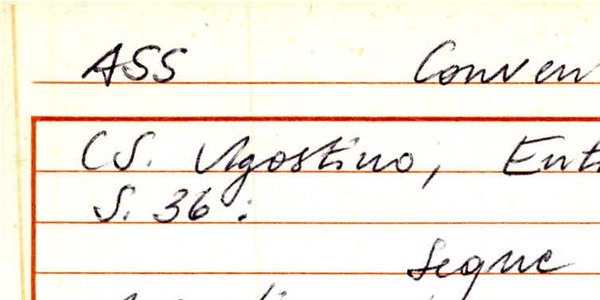 ASS Conven
(S. Agostino, Ent
S. 36:
segue